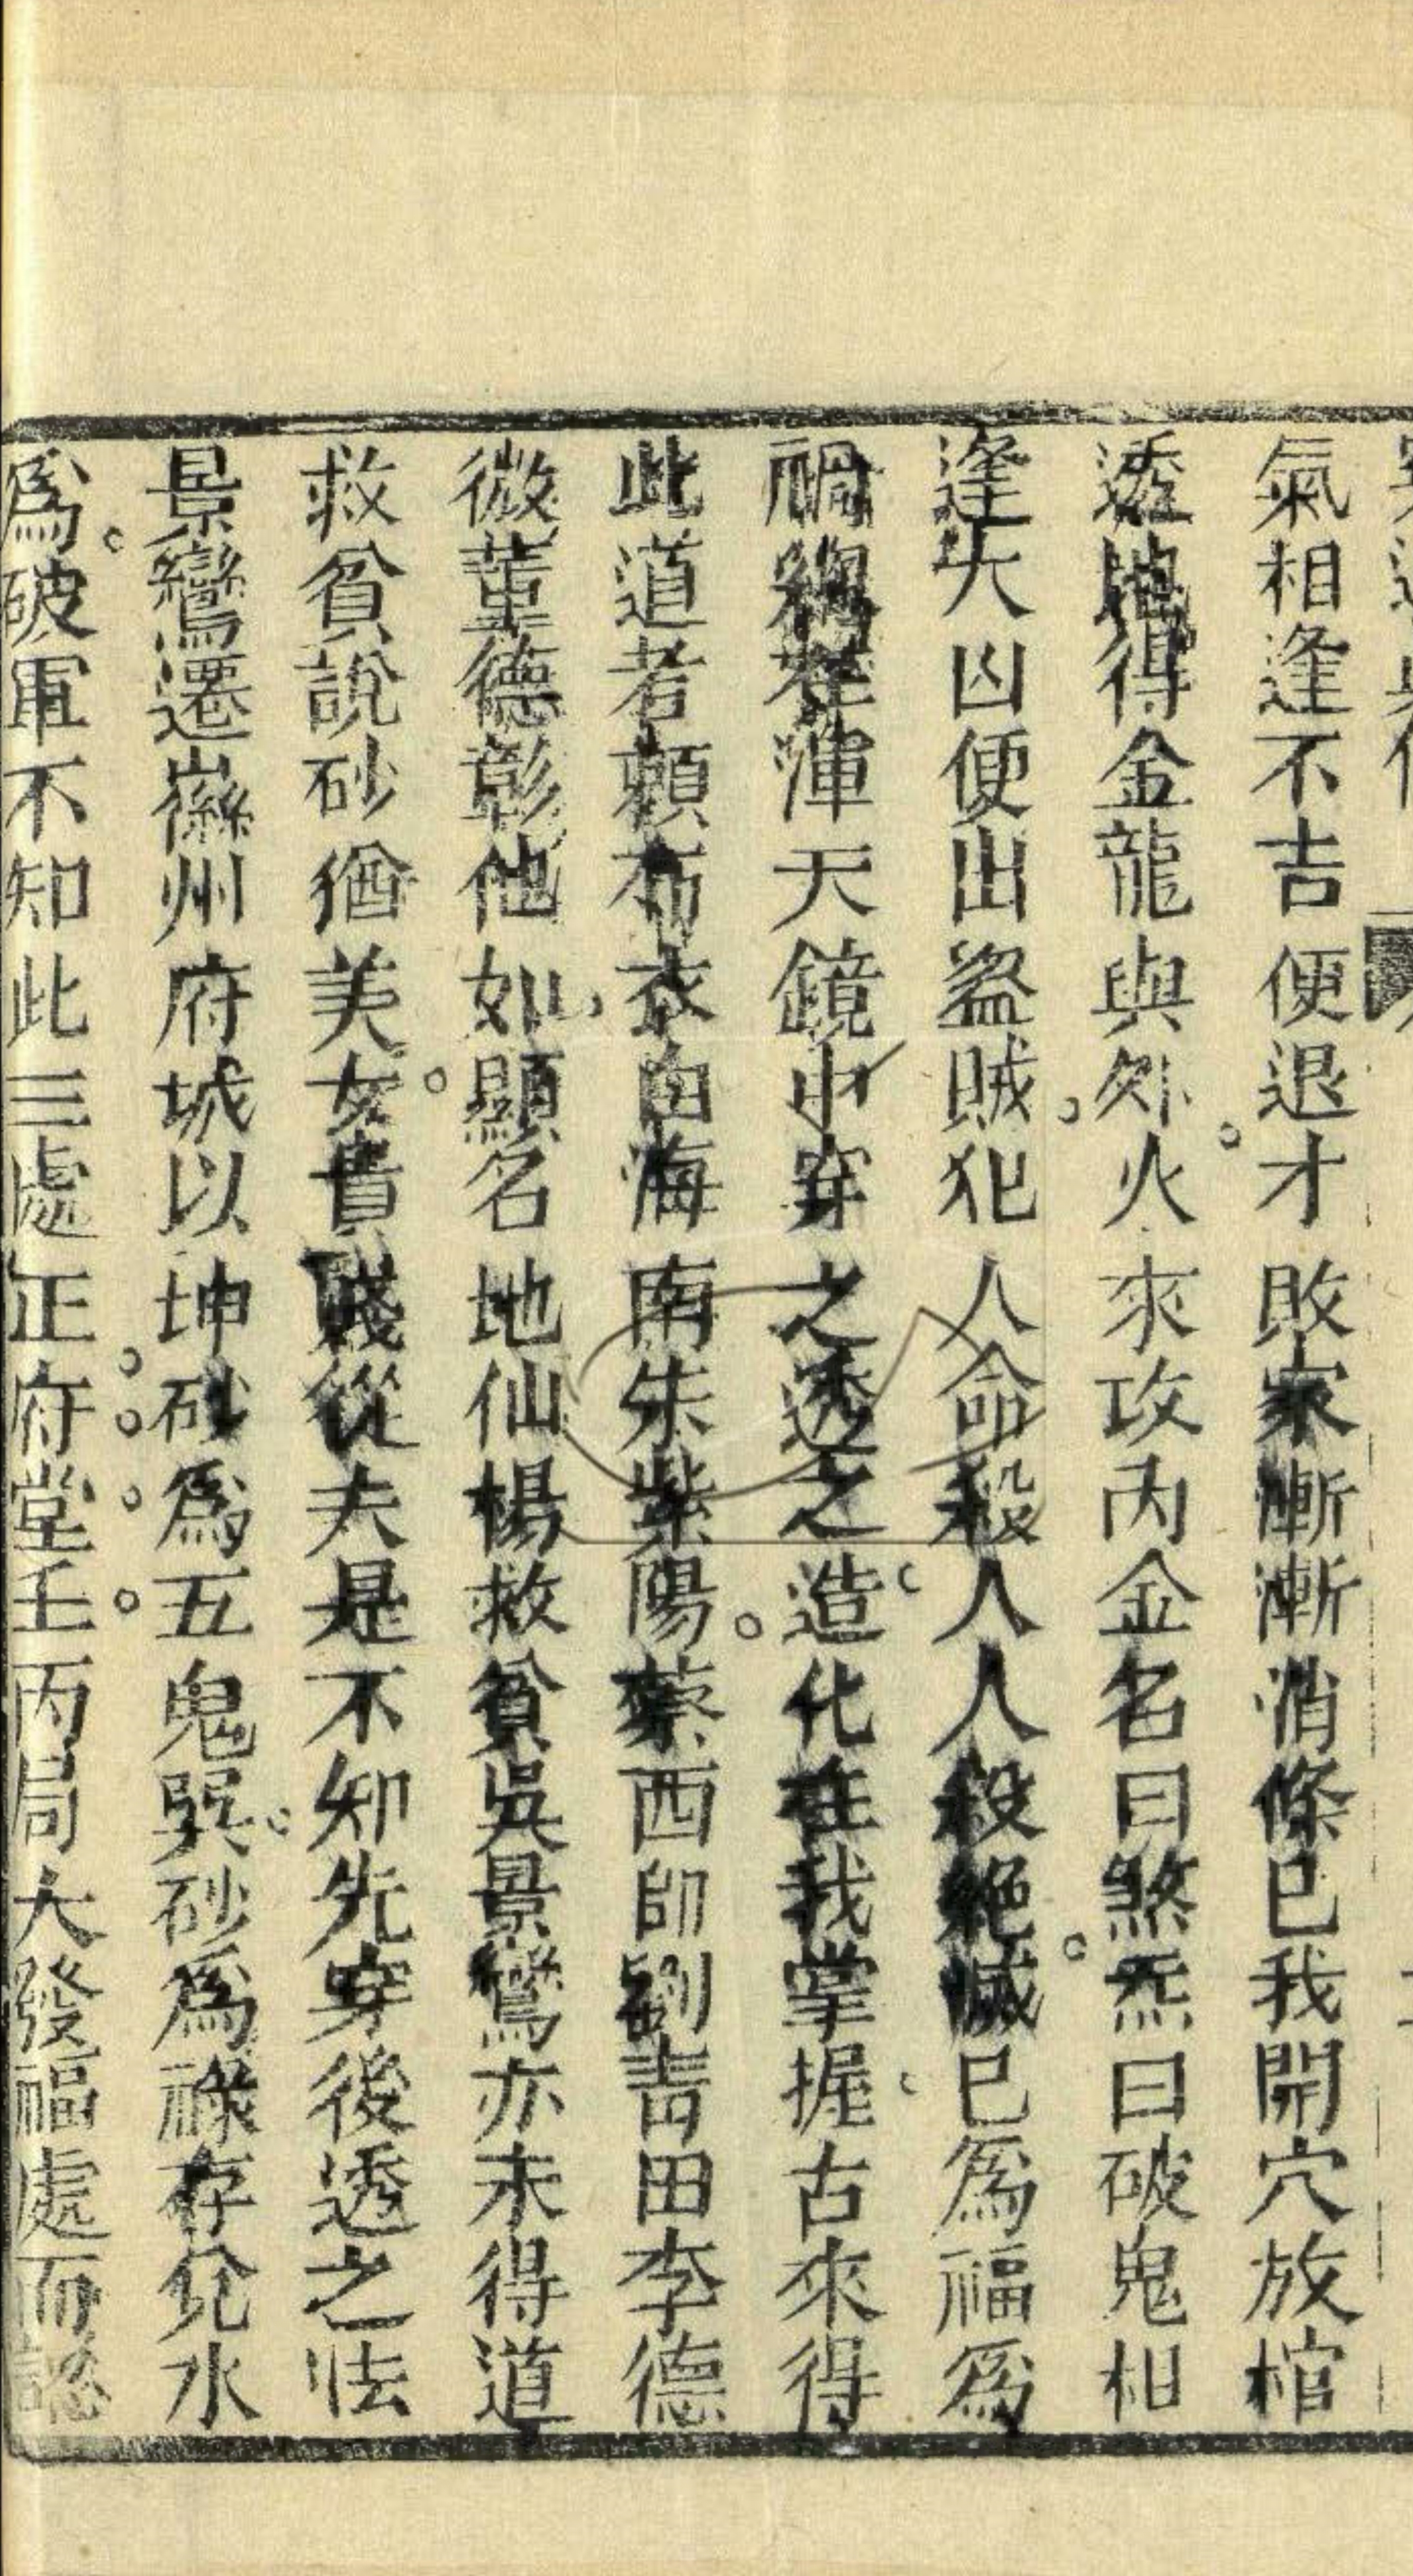 氣相逢不吉便退才敗家漸漸消條已我開穴放棺
透地得金龍與外火來攻丙金名曰煞炁曰破鬼相
逢大凶便出盜賊犯人命殺人人殺絕滅已為福為
禍總在渾天鏡中穿之透之造化在我掌握古來得
此道者頼布衣白海南朱紫陽蔡西師劉青田李德
微董德彰他如顯名地仙楊救貧吳景鸞亦未得道
救貧說砂猶美女貴賤從夫是不知先穿後透之法
景鸞遷嶶州府城以坤砂為五鬼巽砂為祿存兊水
為破軍不知此三處正府堂壬丙局大發福處而認